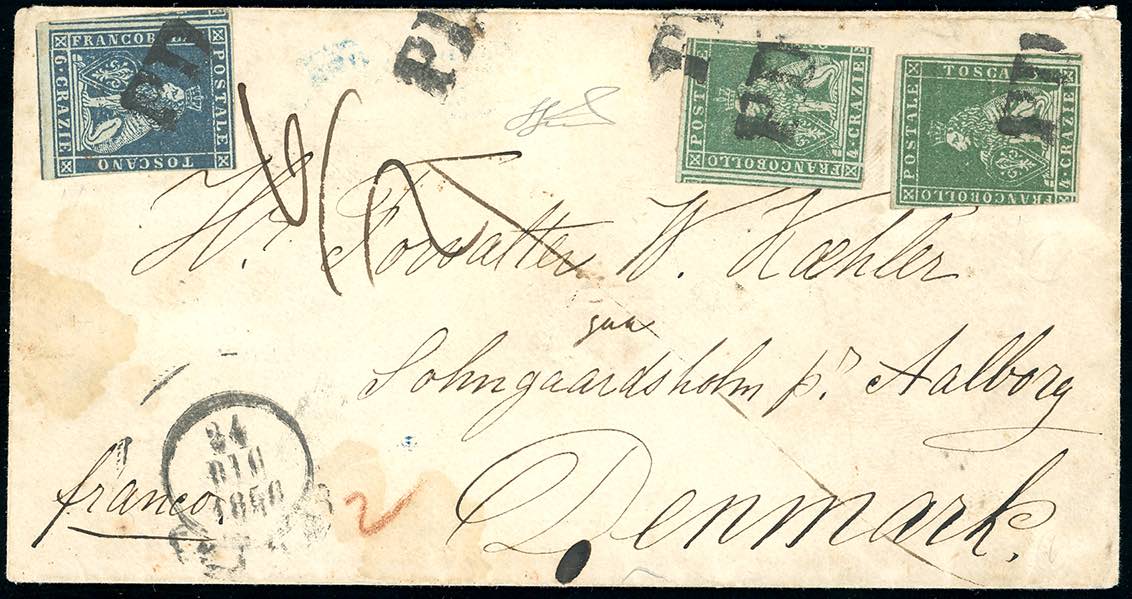 FRANCOBOLLO
POSTALE
TOSCANO
6·CRAZIE
PD
PD
PD
PD
PD
POSTALE
FRANCOBOLLO
4·CRAZIE
TOSCANO
POSTALE
FRANCOBOLLO
4·CRAZIE
Hr. Forvalter W. Kæhler
paa
Sohngaardsholm pr. Aalborg
Denmark,
franco.
24
DIC
1856
2